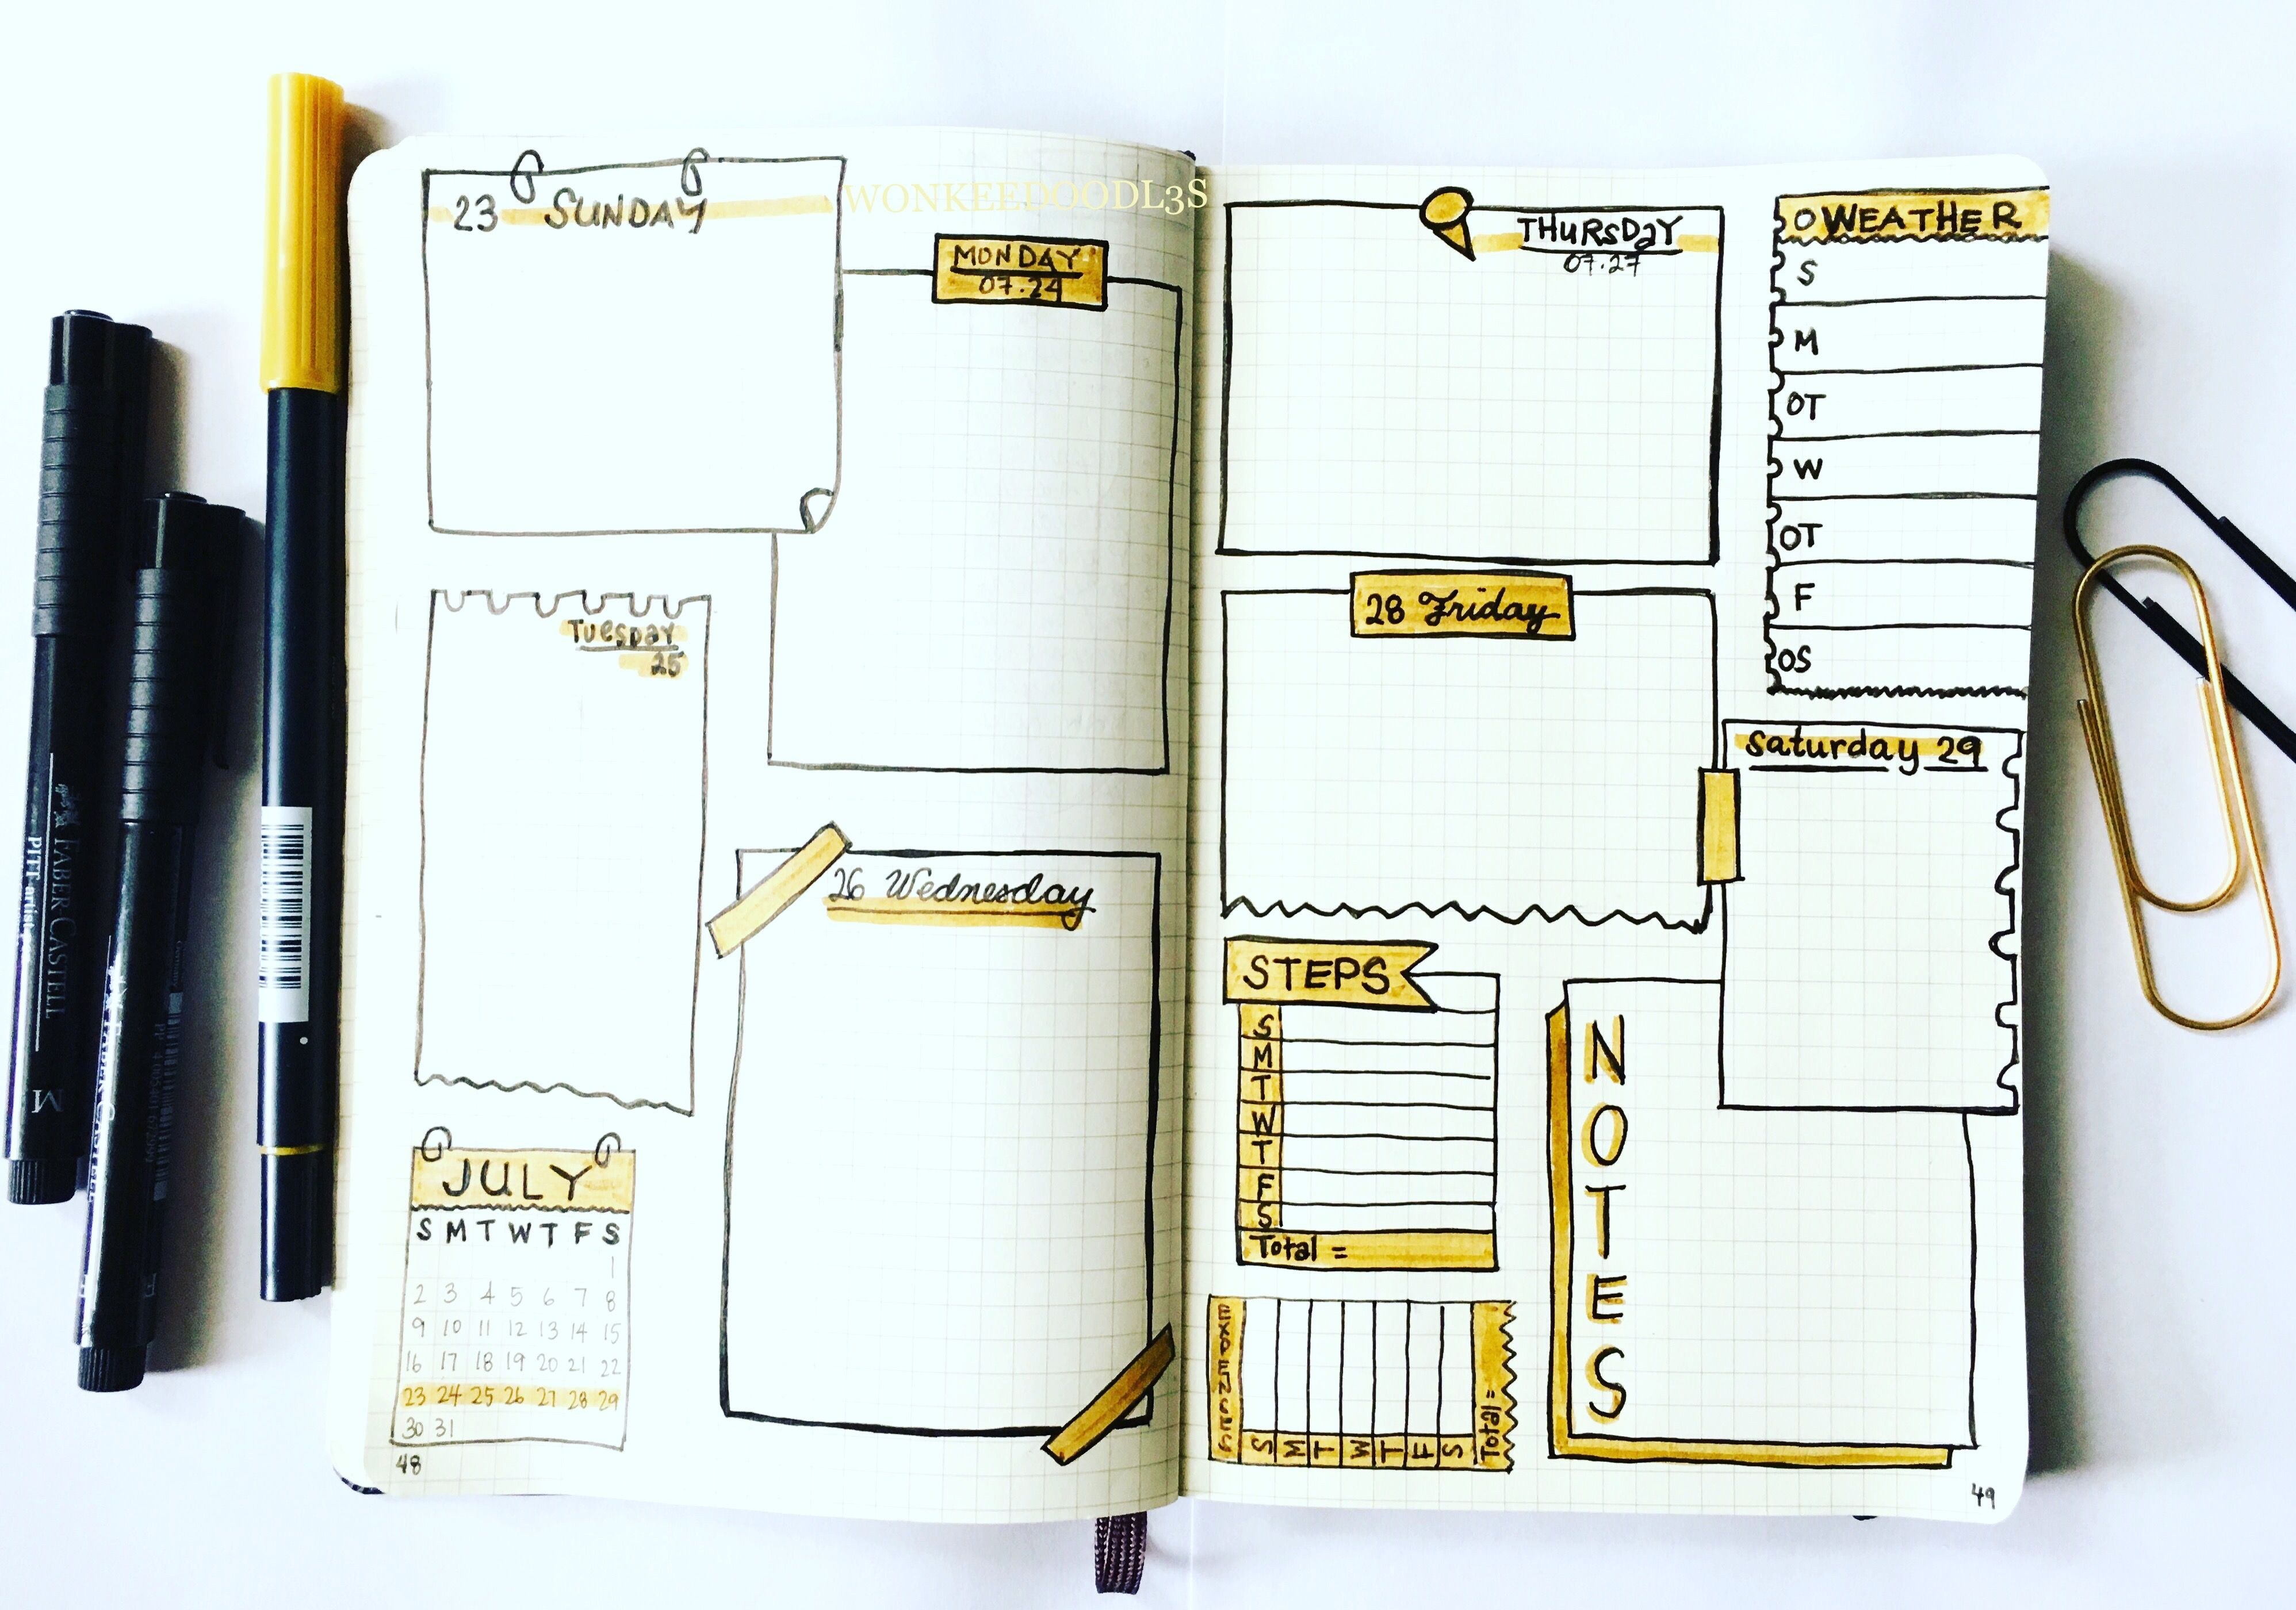 WONKEEDOODL3S
23 SUNDAY
MONDAY
07.24
Tuesday
25
26 Wednesday
JULY
S M T W T F S
1
2 3 4 5 6 7 8
9 10 11 12 13 14 15
16 17 18 19 20 21 22
23 24 25 26 27 28 29
30 31
48
THURSDAY
07.27
28 Friday
WEATHER
S
M
T
W
T
F
S
Saturday 29
STEPS
S
M
T
W
T
F
S
Total =
EXPENSES
S
M
T
W
T
F
S
Total =
NOTES
49
FABER-CASTELL
PITT artist
M